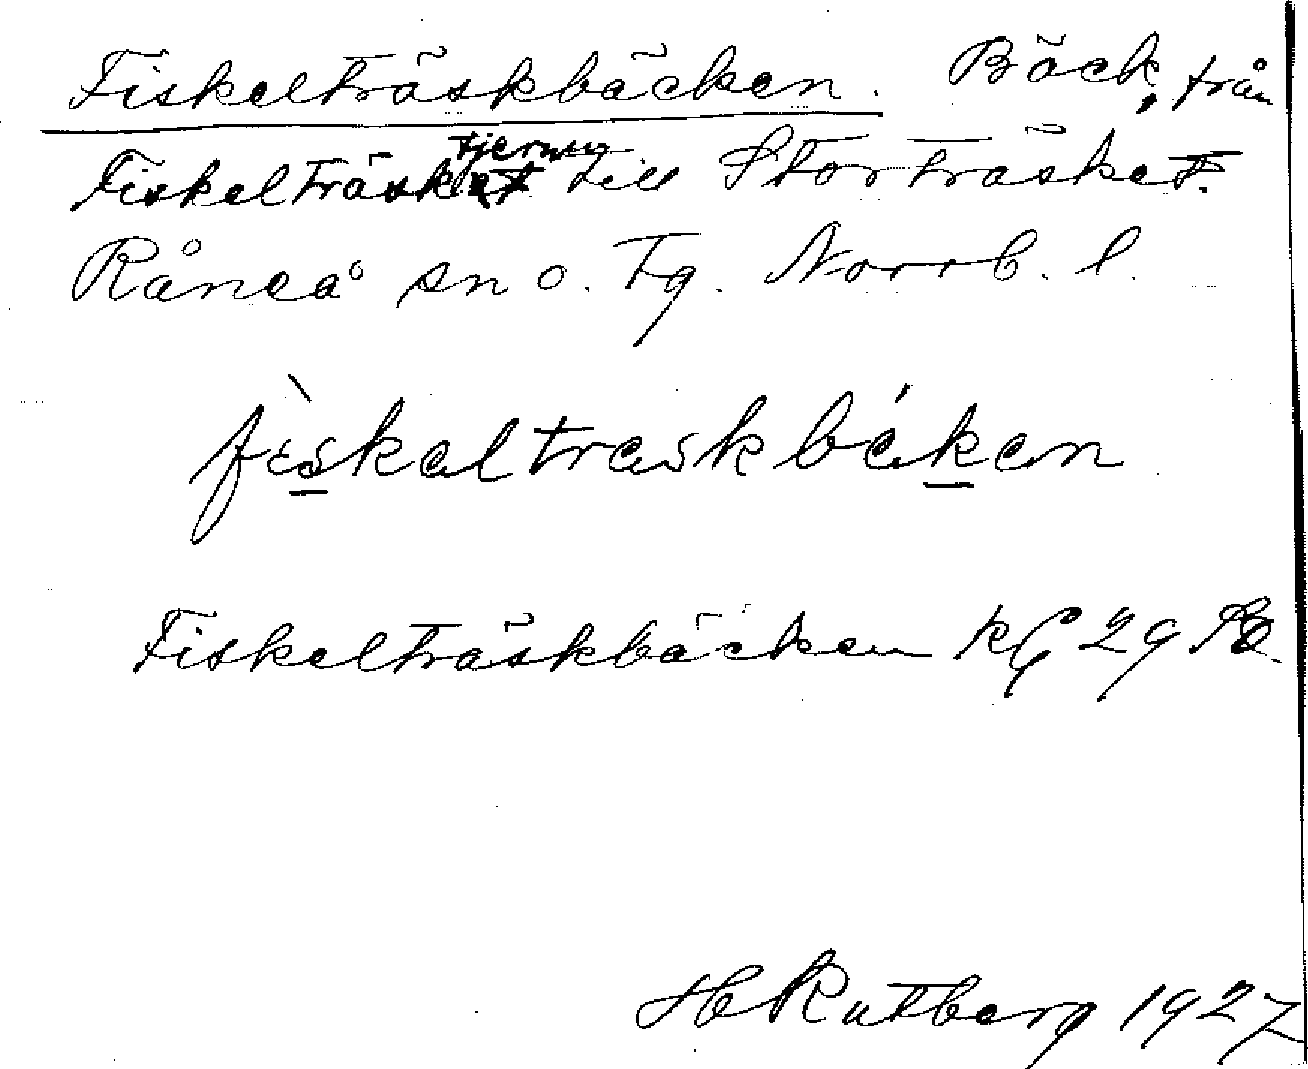 Fiskelträskbäcken. Bäck, från
Fiskelträsktjernen till Storträsket.
Råneå sn o. Tg. Norrb. l.
fìskaltraskbákan
Fiskelträskbäcken kG 29
H Rutberg 1927